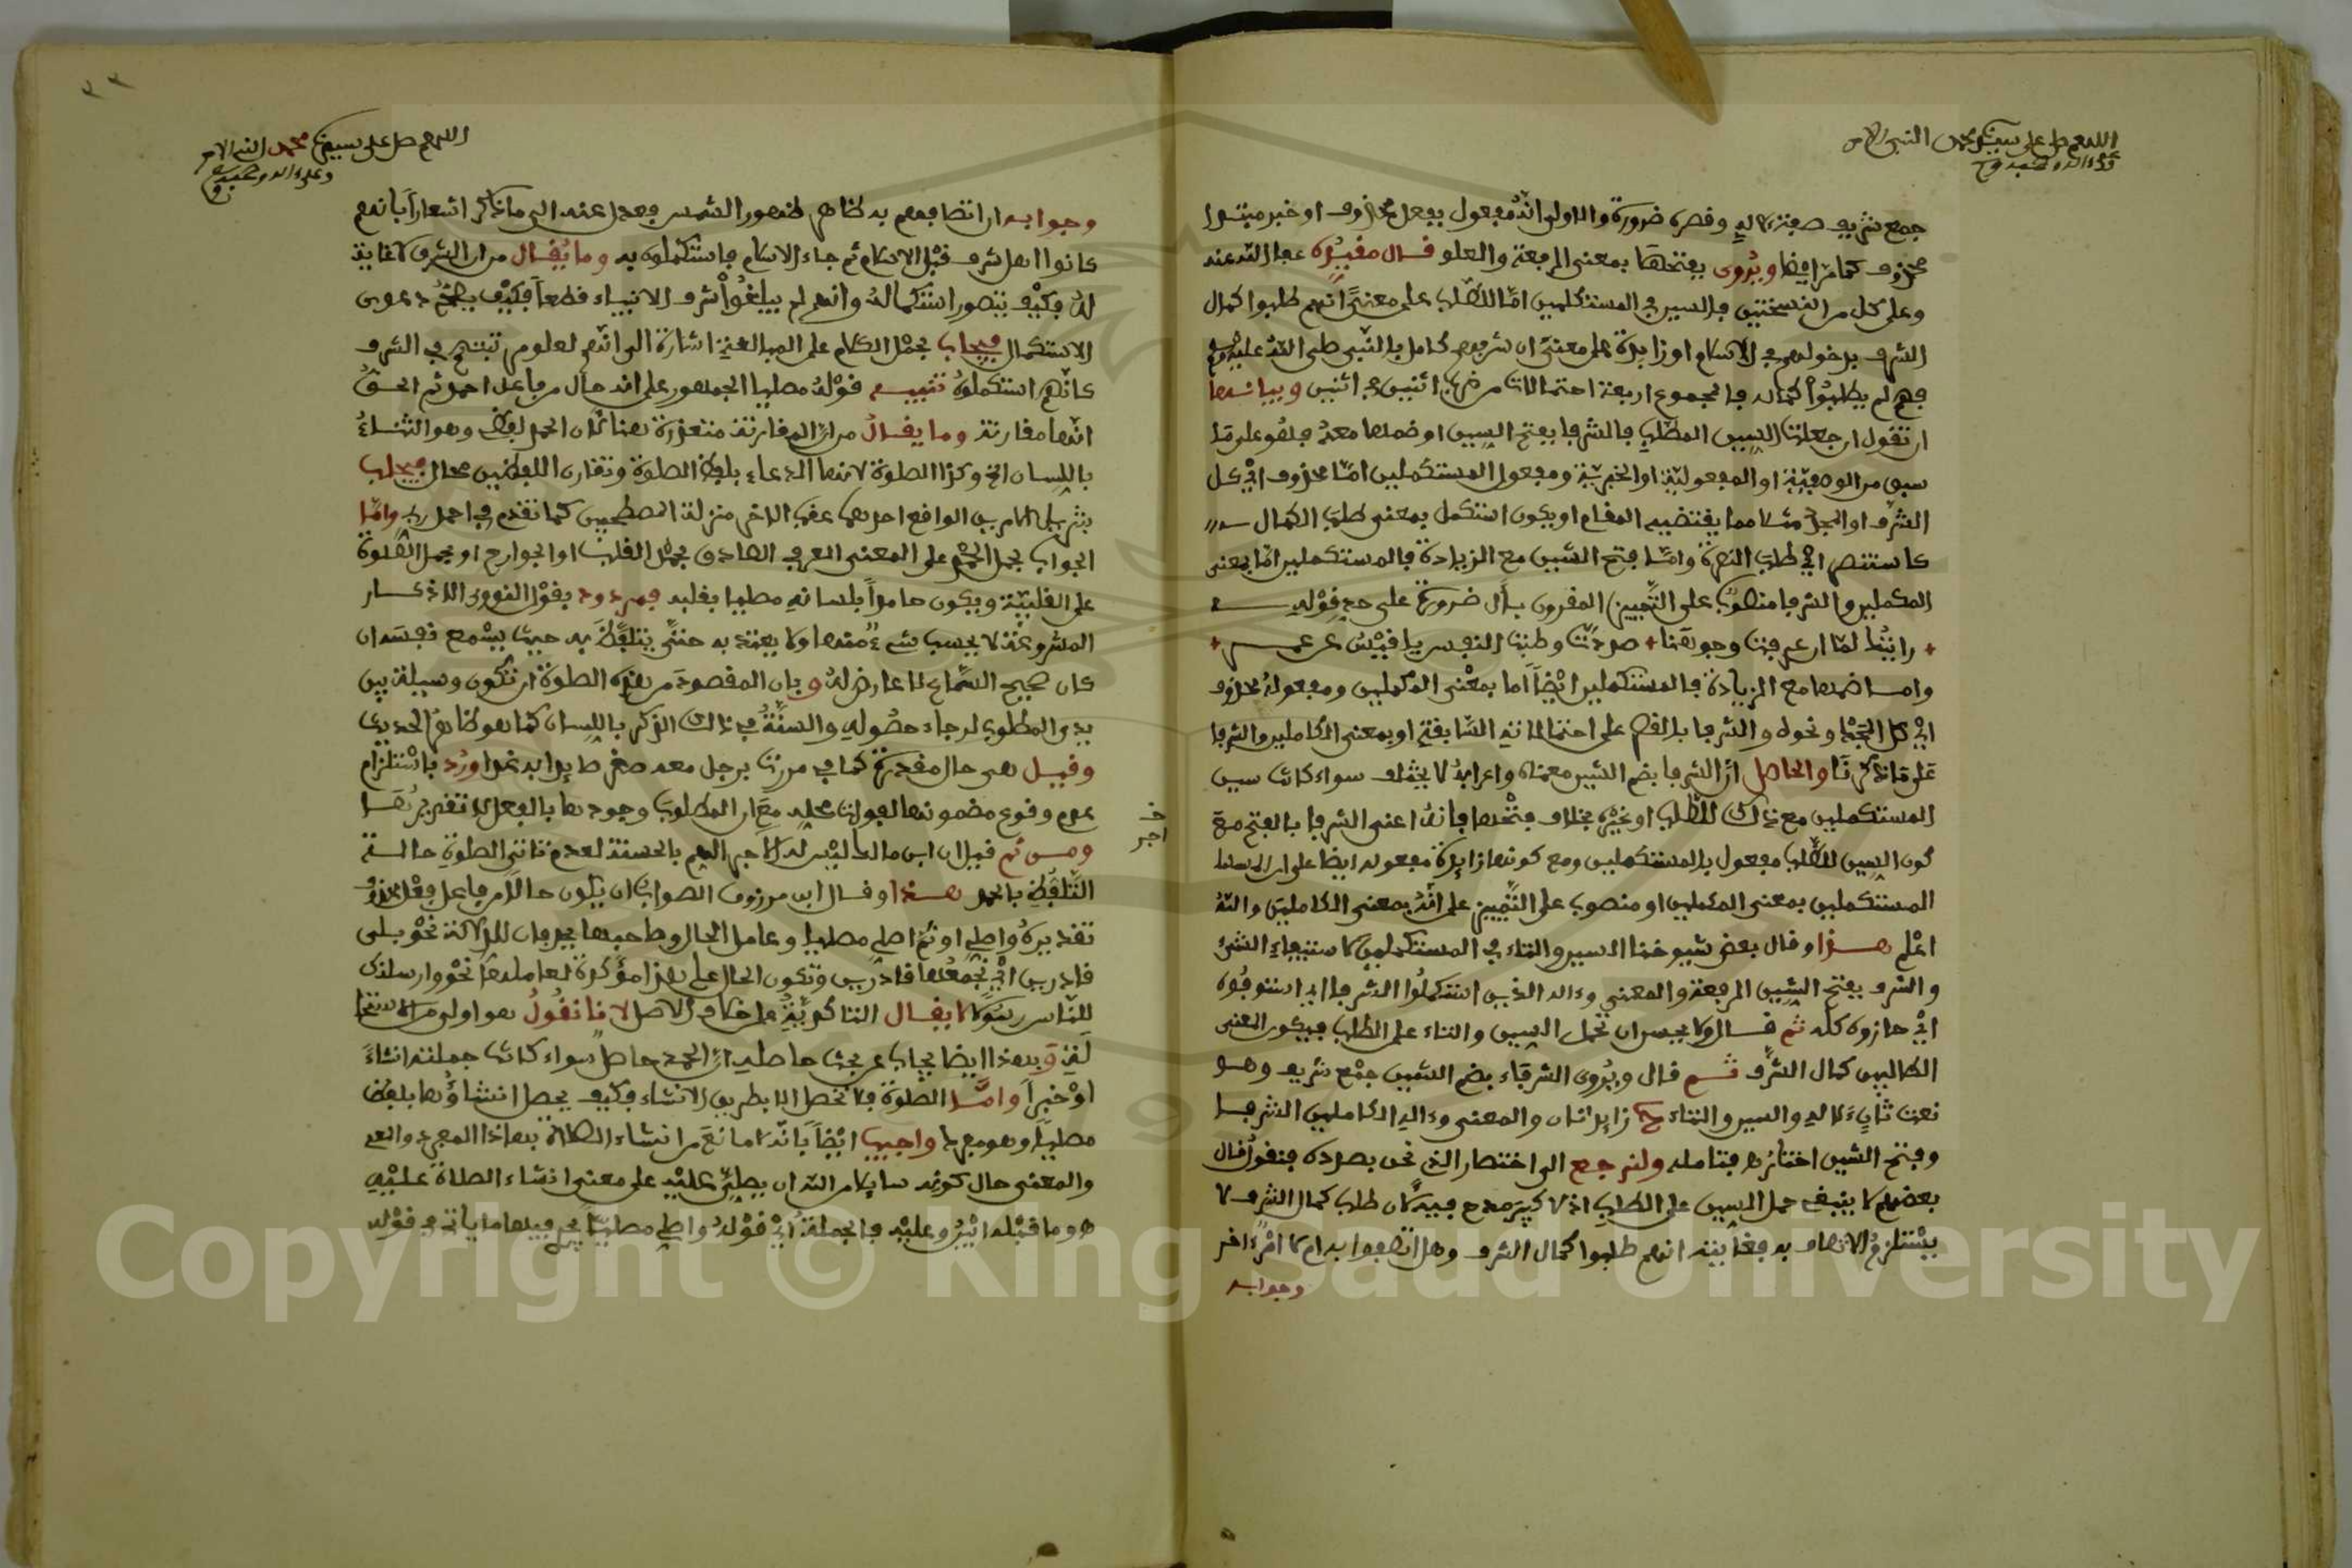 اللهم صل على سيدنا محمد النبي الامي
وعلى اله وصحبه وسلم
جمع شريف صفة لاله وقصره ضرورة والاولى انه مفعول بفعل محذوف او خبر مبتدا
محذوف كما مر ايضا ويروى بفتحها بمعنى الرفعة والعلو قال مقيده عفا الله عنه
وعلى كل من النسختين فالسين في المستكملين اما للطلب على معنى انهم طلبوا كمال
الشرف بدخولهم في الاسلام او زايدة على معنى ان شرفهم كامل بالنبي صلى الله عليه وسلم
فهم لم يطلبوا كماله فالمجموع اربعة احتمالات من ضرب اثنين في اثنين وبيانها
ان تقول ان جعلت السين للطلب فالشرفا بفتح الشين او ضمها معه فهو على ما
سبق من الوصفية او المفعولية او الخبرية ومفعول المستكملين اما محذوف اي كل
الشرف او المجد مثلا مما يقتضيه المقام او يكون استكمل بمعنى طلب الكمال
كاستنصر اي طلب النصرة واما فتح الشين مع الزيادة فالمستكملين اما بمعنى
المكملين والشرفا منصوب على التمييز المقرون بأل ضرورة على حد قوله
رايتك لما ان عرفت وجوهنا صددت وطبت النفس يا قيس عن عمرو
واما ضمها مع الزيادة فالمستكملين ايضا اما بمعنى المكملين ومفعوله محذوف
اي كل المجد ونحوه والشرفا بالضم على احتمالاته السابقة او بمعنى الكاملين والشرفا
على ما ذكرنا والحاصل ان الشرفا بضم الشين معناه واعرابه لا يختلف سواء كانت سين
المستكملين مع ذلك للطلب او غيره بخلاف فتحها فانه اعني الشرفا بالفتح مع
كون السين للطلب مفعول بالمستكملين ومع كونها زايدة مفعوله ايضا على ان
المستكملين بمعنى المكملين او منصوب على التمييز على انه بمعنى الكاملين والله
اعلم هذا وقال بعض شيوخنا السين والتاء في المستكملين كاستيفاء الشيء
والشرف بفتح الشين الرفعة والمعنى وءاله الذين استكملوا الشرفا اي استوفوه
اي حازوه كله ثم قال ولا يحسن ان تحمل السين والتاء على الطلب فيكون المعنى
الطالبين كمال الشرف ثم قال ويروى الشرفاء بضم الشين جمع شريف وهو
نعت ثان لءاله والسين والتاء ح زايدتان والمعنى وءاله الكاملين الشرفا
وفتح الشين اختاره فتامله ولنرجع الى اختصار الذي نحن بصدده فنقول قال
بعضهم لا ينبغي حمل السين على الطلب اذ لا كبير مدح فيه لان طلب كمال الشرف لا
يستلزم الاتصاف به فغايته انهم طلبوا كمال الشرف وهل اتصفوا به ام لا امر ءاخر
وجوابه
اللهم صل على سيدنا محمد النبي الامي
وعلى ءاله وصحبه وسلم
وجوابه ان اتصافهم به ظاهر ظهور الشمس فعدل عنه الى ما ذكر اشعارا بانهم
كانوا اهل شرف قبل الاسلام ثم جاء الاسلام فاستكملوه به وما يقال من ان الشرف لا غاية
له فكيف يتصور استكماله وانهم لم يبلغوا شرف الانبياء قطعا فكيف يصح دعوى
الاستكمال فيجاب بحمل الكلام على المبالغة اشارة الى انهم لعلو مرتبتهم في الشرف
كانهم استكملوه تنبيه قوله مصليا الجمهور على انه حال من فاعل احمد ثم الحق
انها مقارنة وما يقال من ان المقارنة متعذرة هنا لان الحمد لفظي وهو الثناء
باللسان الخ وكذا الصلوة لانها الدعاء بلفظ الصلوة وتقارن اللفظين محال فيجاب
بتنزيل الامرين الواقع احدهما عقب الاخر منزلة المصطحبين كما تقدم في احمد ربي واما
الجواب بحمل الحمد على المعنى العرفي الصادق بحمد القلب او الجوارح او بحمل الصلوة
على القلبية ويكون حامدا بلسانه مصليا بقلبه فمردود بقول النووي الاذكار
المشروعة لا يحسب شيء منها ولا يعتد به حتى يتلفظ به حيث يسمع نفسه ان
كان صحيح السماع لا عارض له وبان المقصود من هذه الصلوة ان تكون وسيلة بين
يدي المطلوب لرجاء حصوله والسنة في ذلك الذكر باللسان كما هو ظاهر الحديث
وقيل هي حال مقدرة كما في مررت برجل معه صقر صايدا به غدا ورد باستلزام
عدم وقوع مضمونها لفوات محله مع ان المطلوب وجودها بالفعل لا تقديرها
ومن ثم قيل ان ابن مالك ليس له الاجر الهم بالحسنة لعدم تاتي الصلوة حالة
التلفظ بالحمد هذا وقال ابن مرزوق الصواب ان يكون حالا من فاعل فعل محذوف
تقديره واصلي او ثم اصلي مصليا وعامل الحال وصاحبها يحذفان للدلالة نحو بلى
قادرين اي نجمعها قادرين وتكون الحال على هذا مؤكدة لعاملها نحو وارسلناك
للناس رسولا لا يقال التاكيد على خلاف الاصل لانا نقول هو اولى من الاستحالة
وبهذا ايضا يجاب عن بحث حاصله ان الحمد حاصل سواء كانت جملته انشاء
او خبرا واما الصلوة فلا تحصل الا بطريق الانشاء فكيف يحصل انشاؤها بلفظ
مصليا وهو مفرد واجيب ايضا بانه لا مانع من انشاء الصلاة بهذا المفرد والمعنى
والمعنى حال كونه سايلا من الله ان يصلي عليه على معنى انشاء الصلاة عليه
هو وما قبله ابين وعليه فالجملة اي قوله واصلي مصليا يجري فيها ما ياتي في قوله
خ
اجر